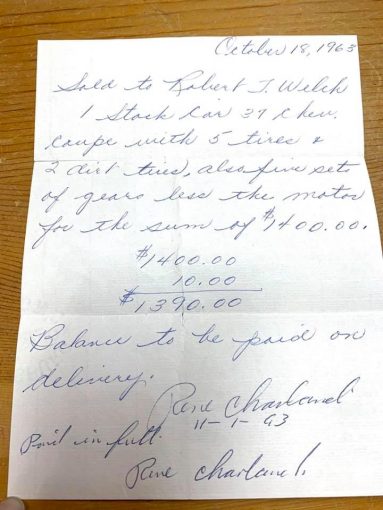 October 18, 1963
Sold to Robert J. Welch
1 Stock Car 37 Chev.
coupe with 5 tires &
2 dirt tires, also five sets
of gears less the motor
for the sum of $1400.00.
$1400.00
10.00
$1390.00
Balance to be paid on
delivery.
Rene Charland
11-1-63
Paid in full.
Rene Charland.